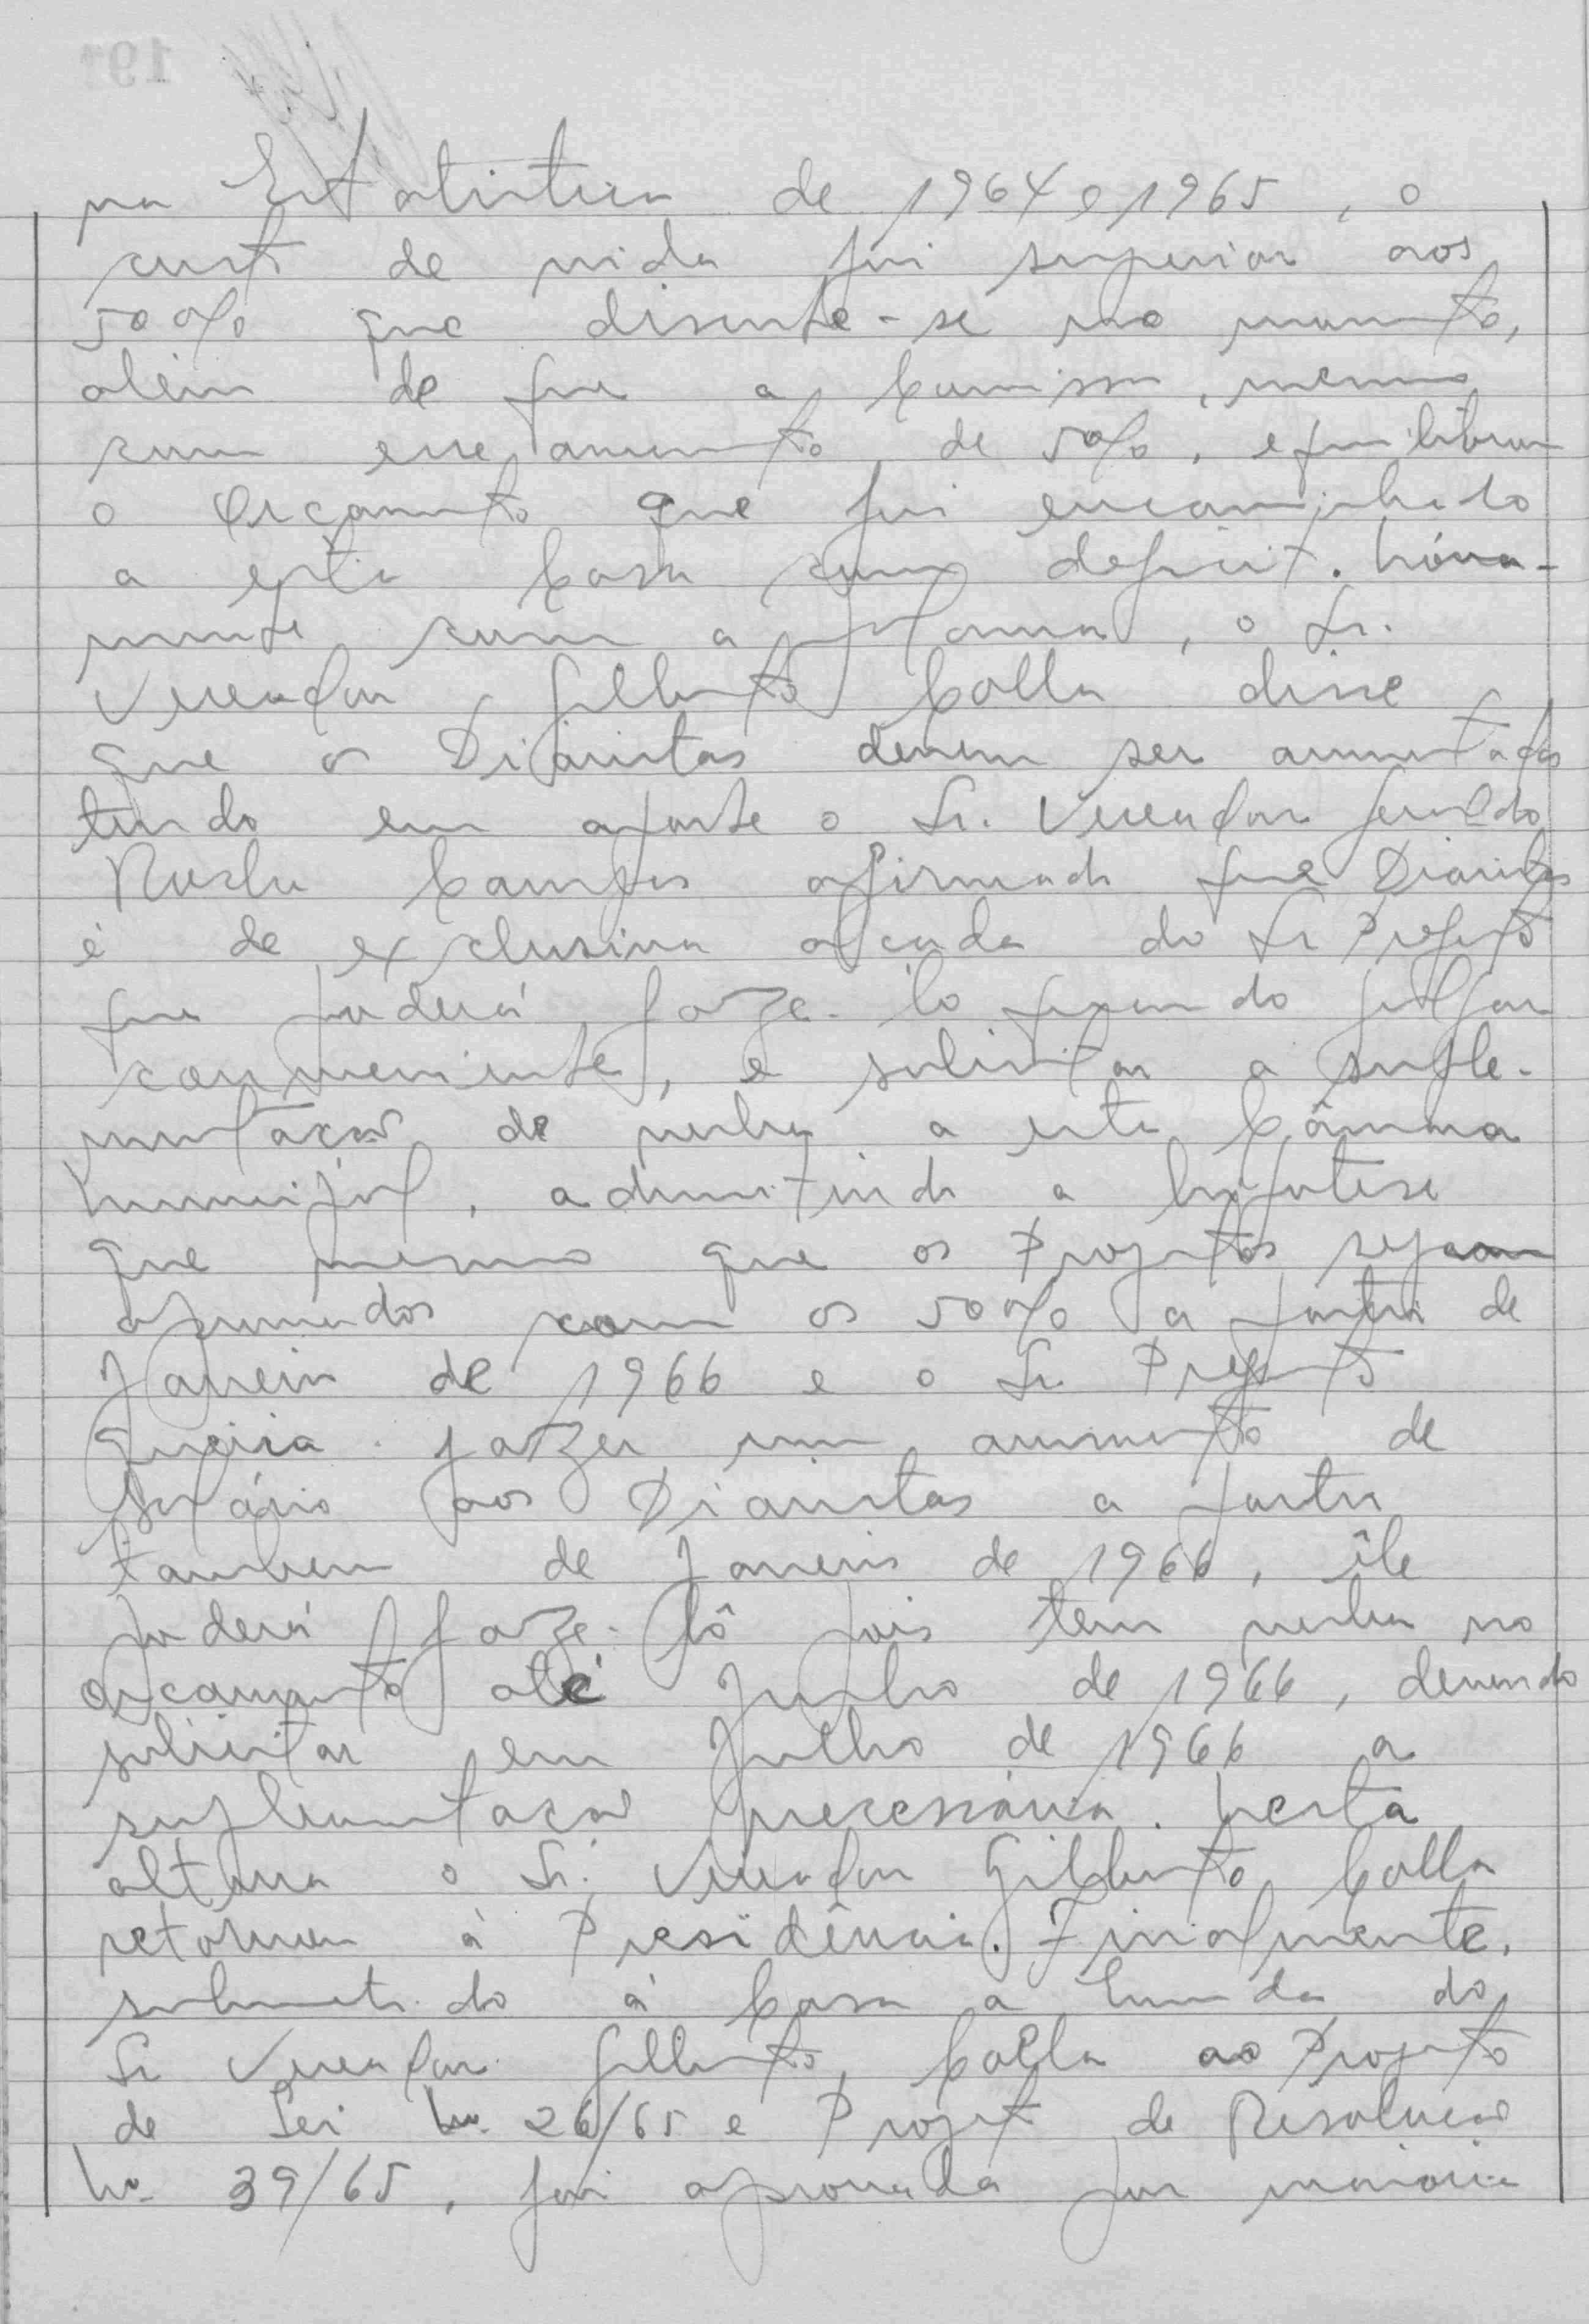 na Estatistica de 1964 e 1965, o
custo de vida foi superior aos
50% que discute-se no momento,
além de que a Comissão, mesmo
com esse aumento de 50%, equilibrou
o Orçamento que foi encaminhado
a esta Casa com deficit. Nova-
mente com a palavra, o Sr.
Vereador Gilberto Colla disse
que os Diaristas devem ser aumentados
tendo em aparte o Sr. Vereador Geraldo
Rocha Campos afirmado que Diaristas
é de exclusiva alçada do Sr Prefeito
que poderá faze-lo quando julgar
conveniente, e solicitar a suple-
mentação de verba a esta Câmara
Municipal, admitindo a hipotese
que mesmo que os Projetos sejam
aprovados com os 50% a partir de
Janeiro de 1966 e o Sr. Prefeito
queira fazer um aumento de
salário aos Diaristas a partir
tambem de Janeiro de 1966, êle
poderá faze-lô pois tem verba no
orçamento até Junho de 1966, devendo
solicitar em Julho de 1966 a
suplementação necessária. Nesta
altura o Sr. Vereador Gilberto Colla
retornou à Presidência. Finalmente,
submetido à Casa a Emenda do
Sr Vereador Gilberto Colla ao Projeto
de Lei Nº 26/65 e Projeto de Resolução
Nº 39/65, foi aprovada por maioria